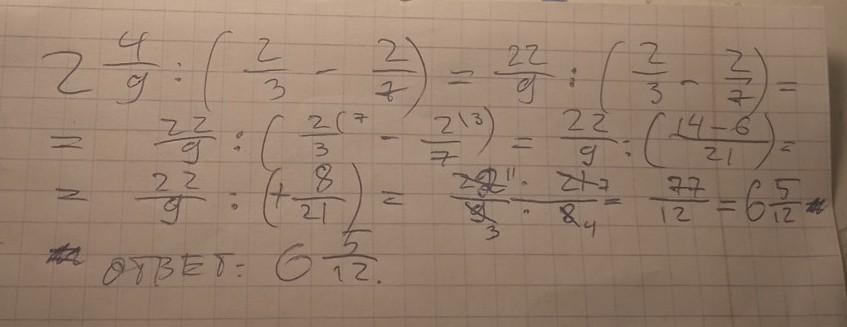 2 4/9 : (2/3 - 2/7) = 22/9 : (2/3 - 2/7) =
= 22/9 : (2(7/3 - 2\3)/7 = 22/9 : (14-6/21) =
= 22/9 : (+ 8/21) = 22 11 · 21 7/9 3 · 8 4 = 77/12 = 6 5/12
ОТВЕТ: 6 5/12.